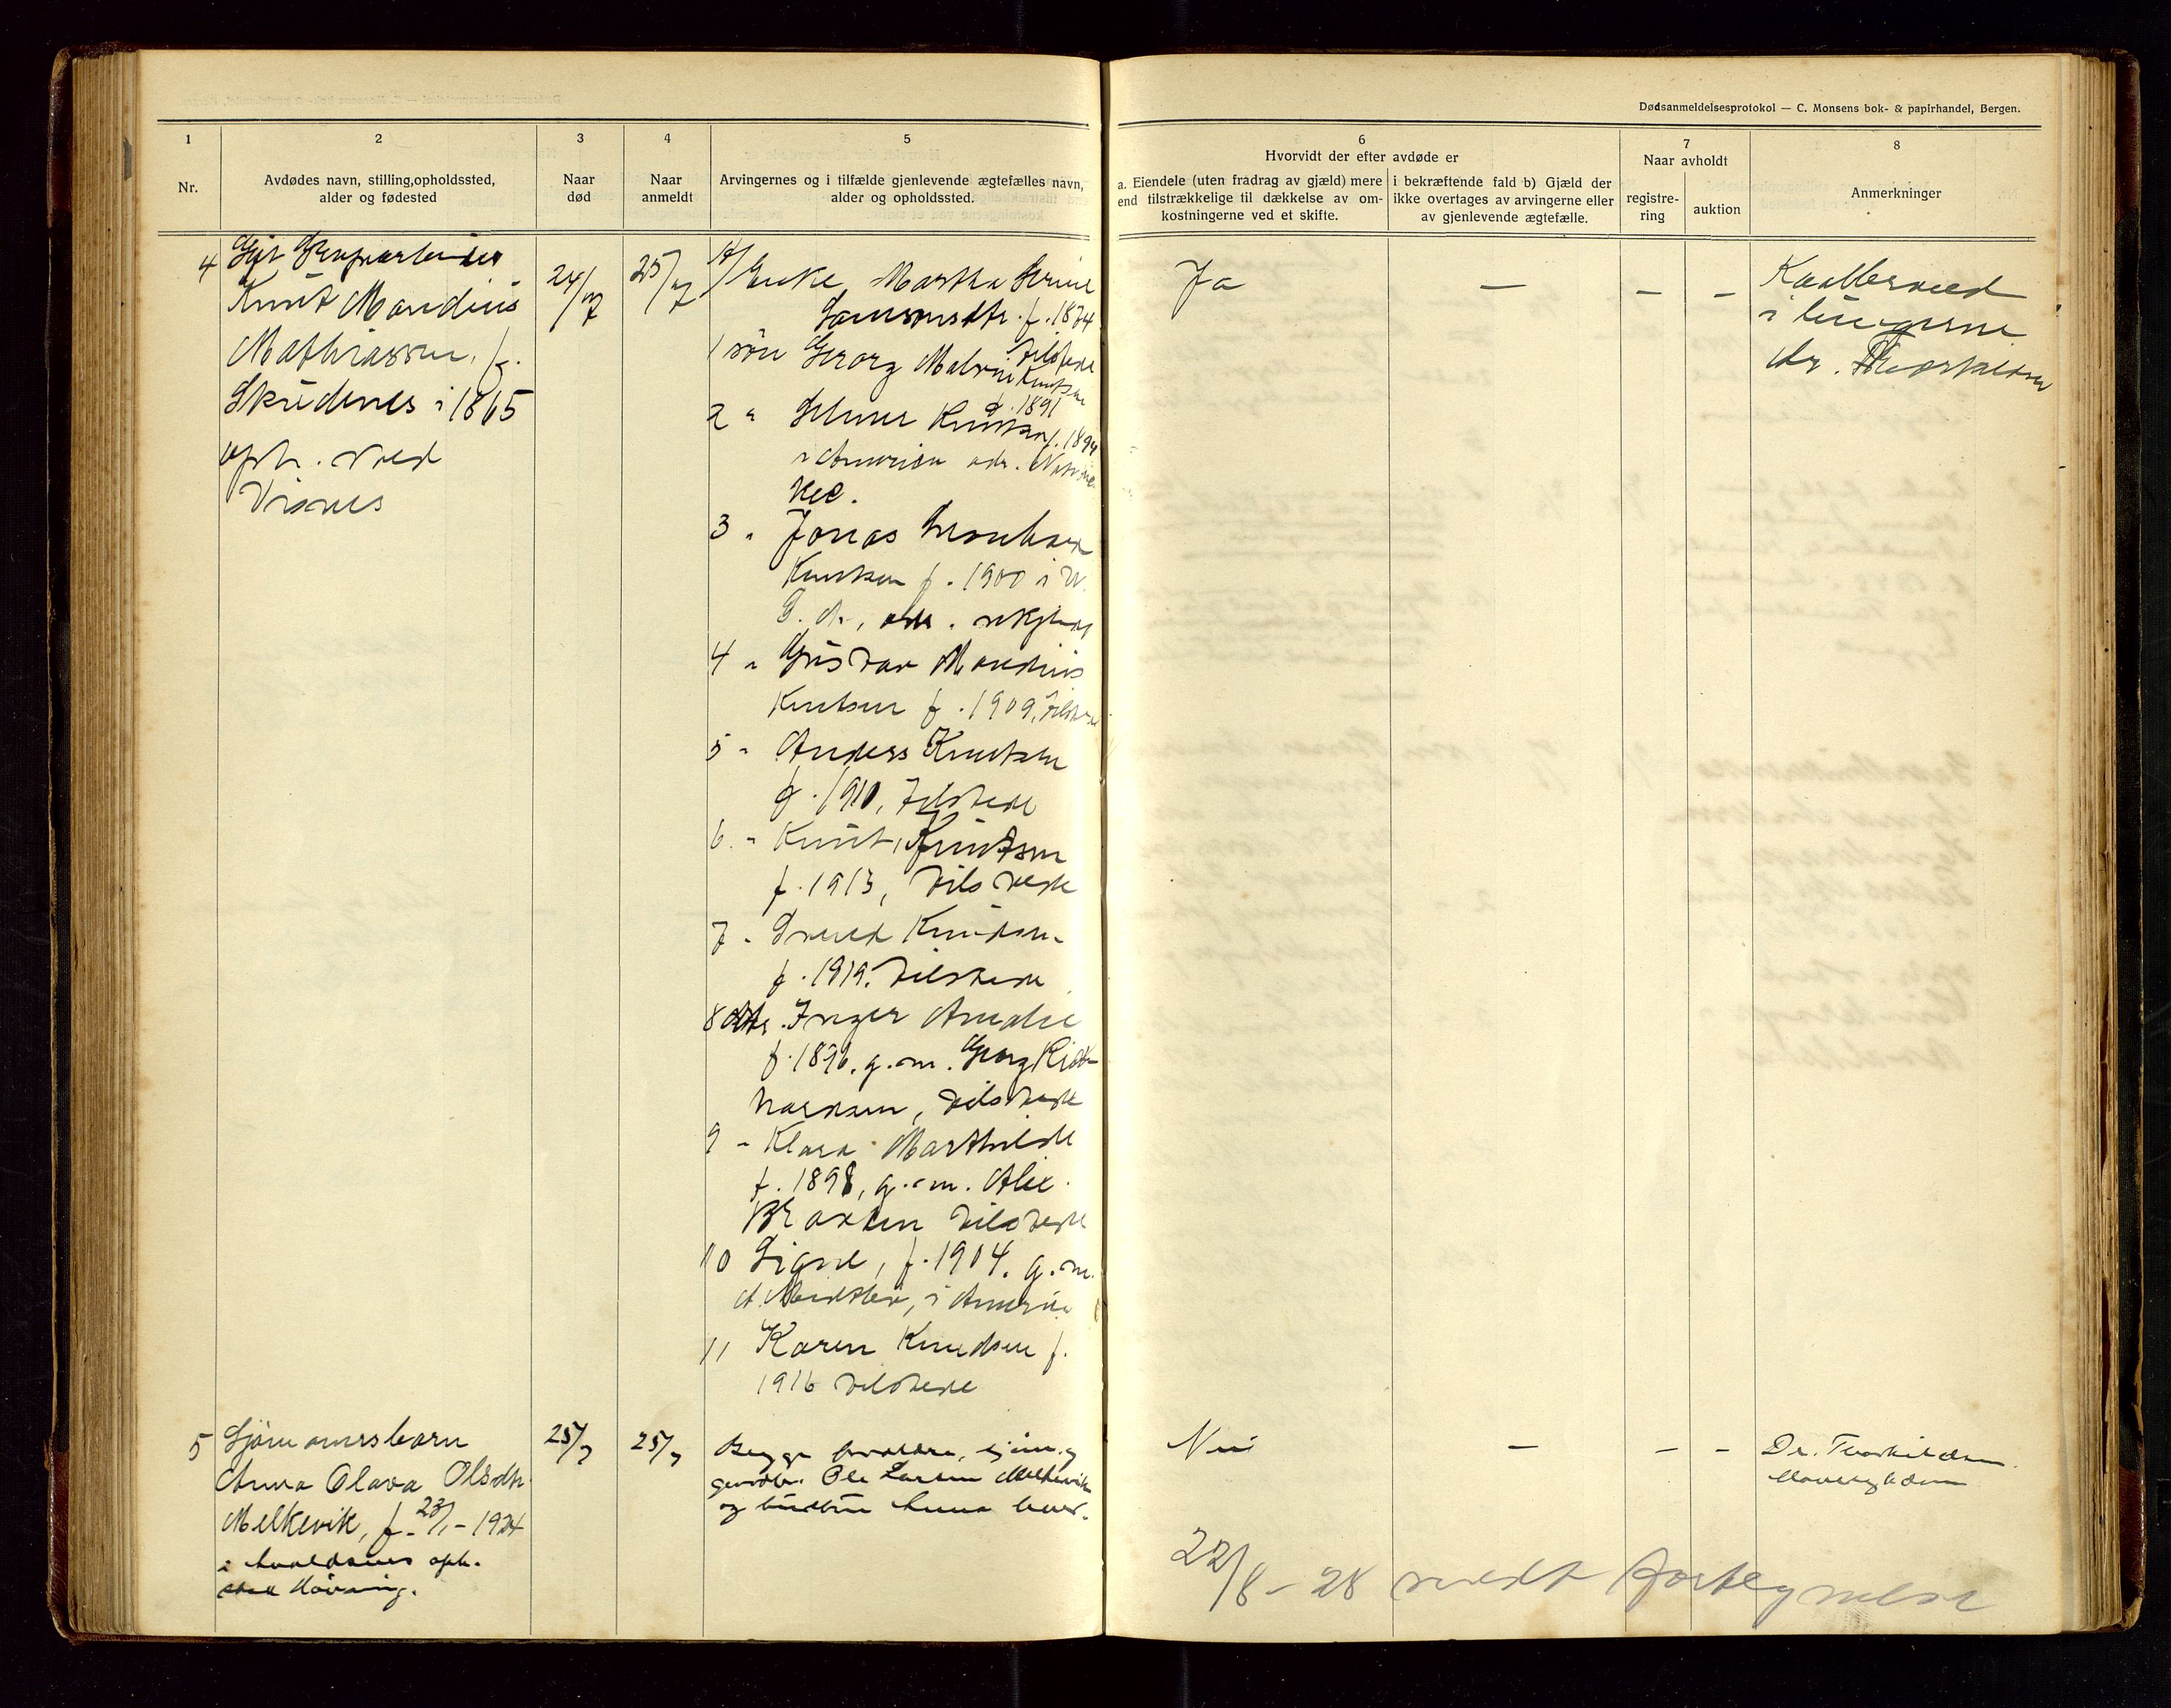 Dødsanmeldelsesprotokol — C. Monsens bok- & papirhandel, Bergen.
1
Nr.
2
Avdødes navn, stilling, opholdssted,
alder og fødested
3
Naar
død
4
Naar
anmeldt
5
Arvingernes og i tilfælde gjenlevende ægtefælles navn,
alder og opholdssted.
6
Hvorvidt der efter avdøde er
a. Eiendele (uten fradrag av gjæld) mere
end tilstrækkelige til dækkelse av om-
kostningerne ved et skifte.
i bekræftende fald b) Gjæld der
ikke overtages av arvingerne eller
av gjenlevende ægtefælle.
7
Naar avholdt
registre-
ring
auktion
8
Anmerkninger
4
Gift
Knut Maudius
Mathiassen, f.
Skudenes i 1865
oph. ved
Visnes
24/7
25/7
A/ Enke Martha Serine
f. 1874
tilstede
1 søn Georg Malvin Knutsen
f. 1891
2 " Selmer Knutsen f. 1894
i Amerika adr.
3 " Jonas
Knutsen f. 1900 i U.
S. A., adr.
4 " Gustav Maudius
Knutsen f. 1909, tilstede
5 " Anders Knutsen
f. 1910, tilstede
6. " Knut Knutsen
f. 1913, tilstede
7 " Knudsen
f. 1919. tilstede
8 dtr. Inger Amalie
f. 1896. g. m. Georg Rick-
hardsen, tilstede
9 " Klara Marthilde
f. 1898, g. m. Alex.
tilstede
10 Signe, f. 1904. g. m.
A. i Amerika
11 Karen Knudsen f.
1916 tilstede
Ja
—
— —
i lungerne
dr.
5
Sjømannsbarn
Anna Olava Olsdtr.
Melkevik, f. 23/1 - 1924
i Avaldsnes oph.
25/7
25/7
Begge forældre,
Ole Larsen Melkevik
og hustru Anna
Nei
—
— —
Dr.
22/8 - 28 sendt fortegnelse